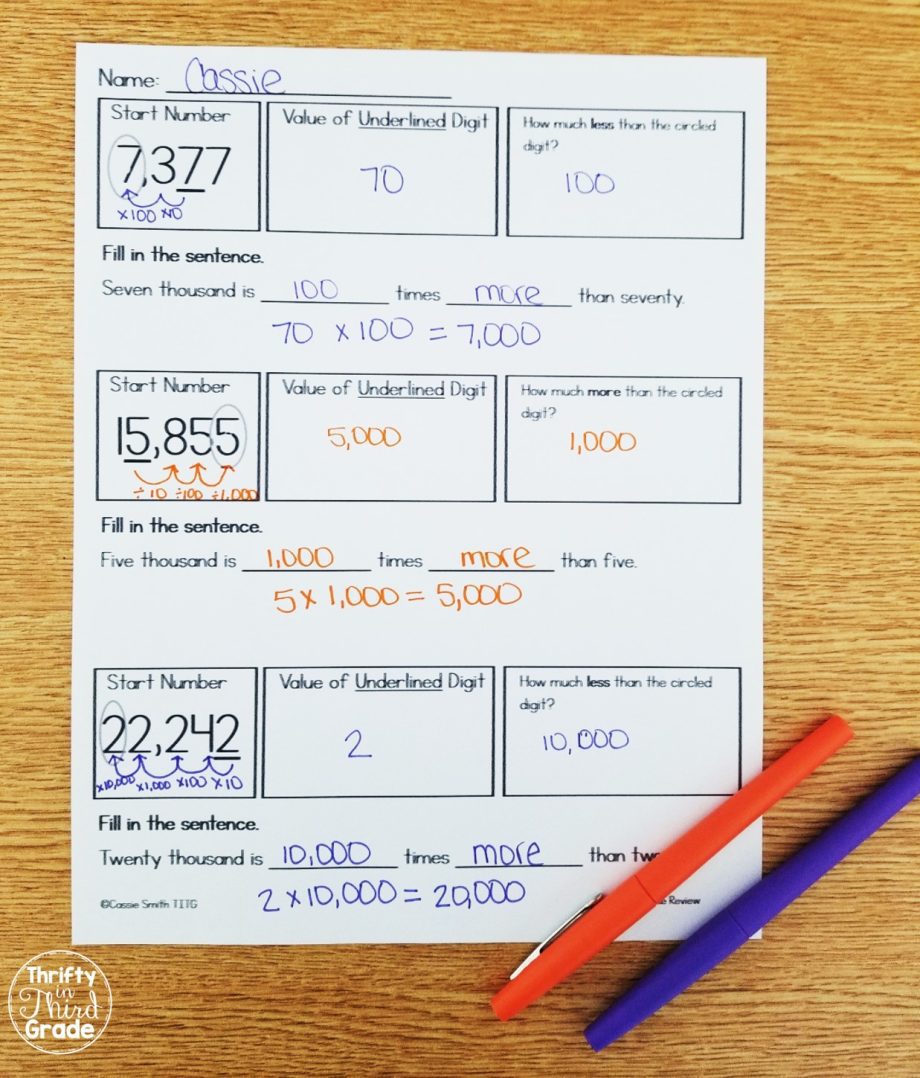 Name: Cassie
Start Number
7,377
x100 x10
Value of Underlined Digit
70
How much less than the circled
digit?
100
Fill in the sentence.
Seven thousand is 100 times more than seventy.
70 x 100 = 7,000
Start Number
15,855
÷10 ÷100 ÷1,000
Value of Underlined Digit
5,000
How much more than the circled
digit?
1,000
Fill in the sentence.
Five thousand is 1,000 times more than five.
5 x 1,000 = 5,000
Start Number
22,242
x10,000 x1,000 x100 x10
Value of Underlined Digit
2
How much less than the circled
digit?
10,000
Fill in the sentence.
Twenty thousand is 10,000 times more than
2 x 10,000 = 20,000
©Cassie Smith TITG
Review
Thrifty
in
Third
Grade